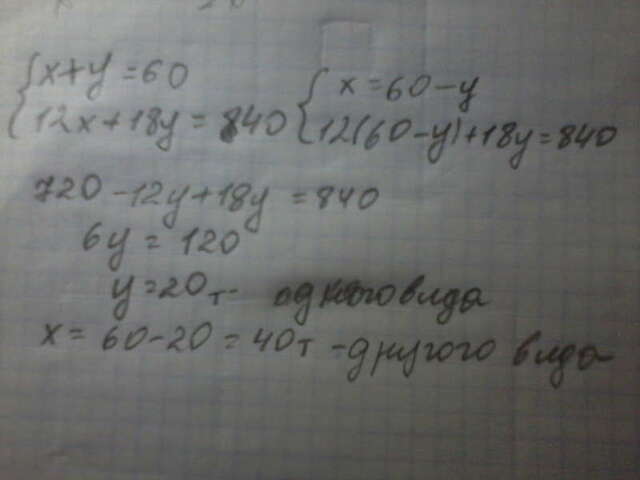 {x+y=60 {x=60-y
12x+18y=840 12(60-y)+18y=840
720-12y+18y=840
6y=120
y=20т- одного вида
x=60-20=40т-другого вида